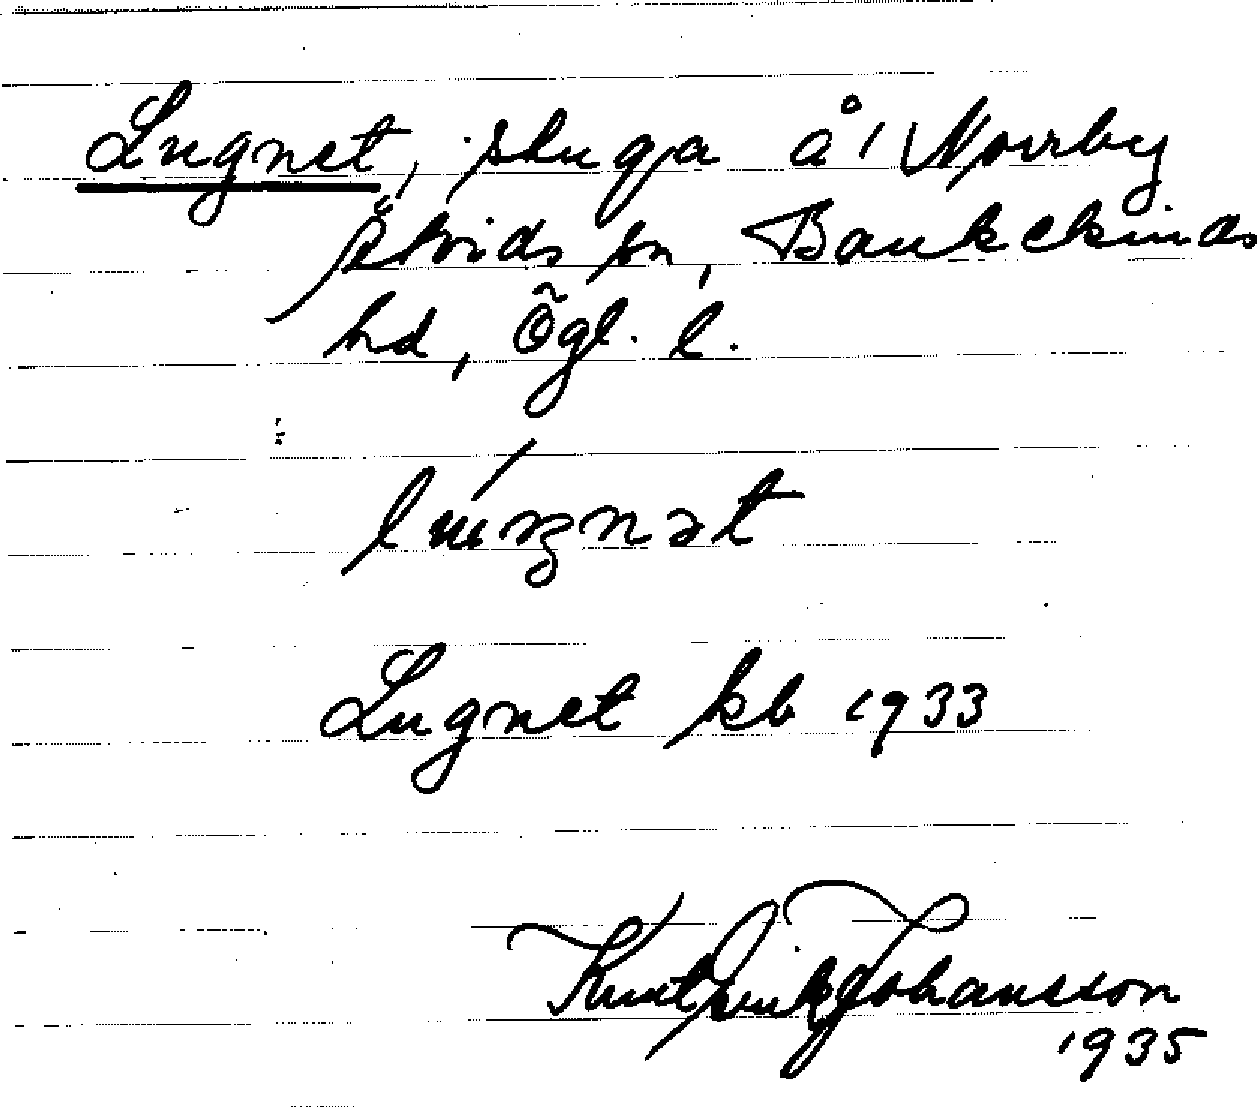 Lugnet, stuga å Norrby
Åtvids sn, Bankekinds
hd, Ögl. l.
Lugnet kb 1933
Knut Erik Johansson
1935